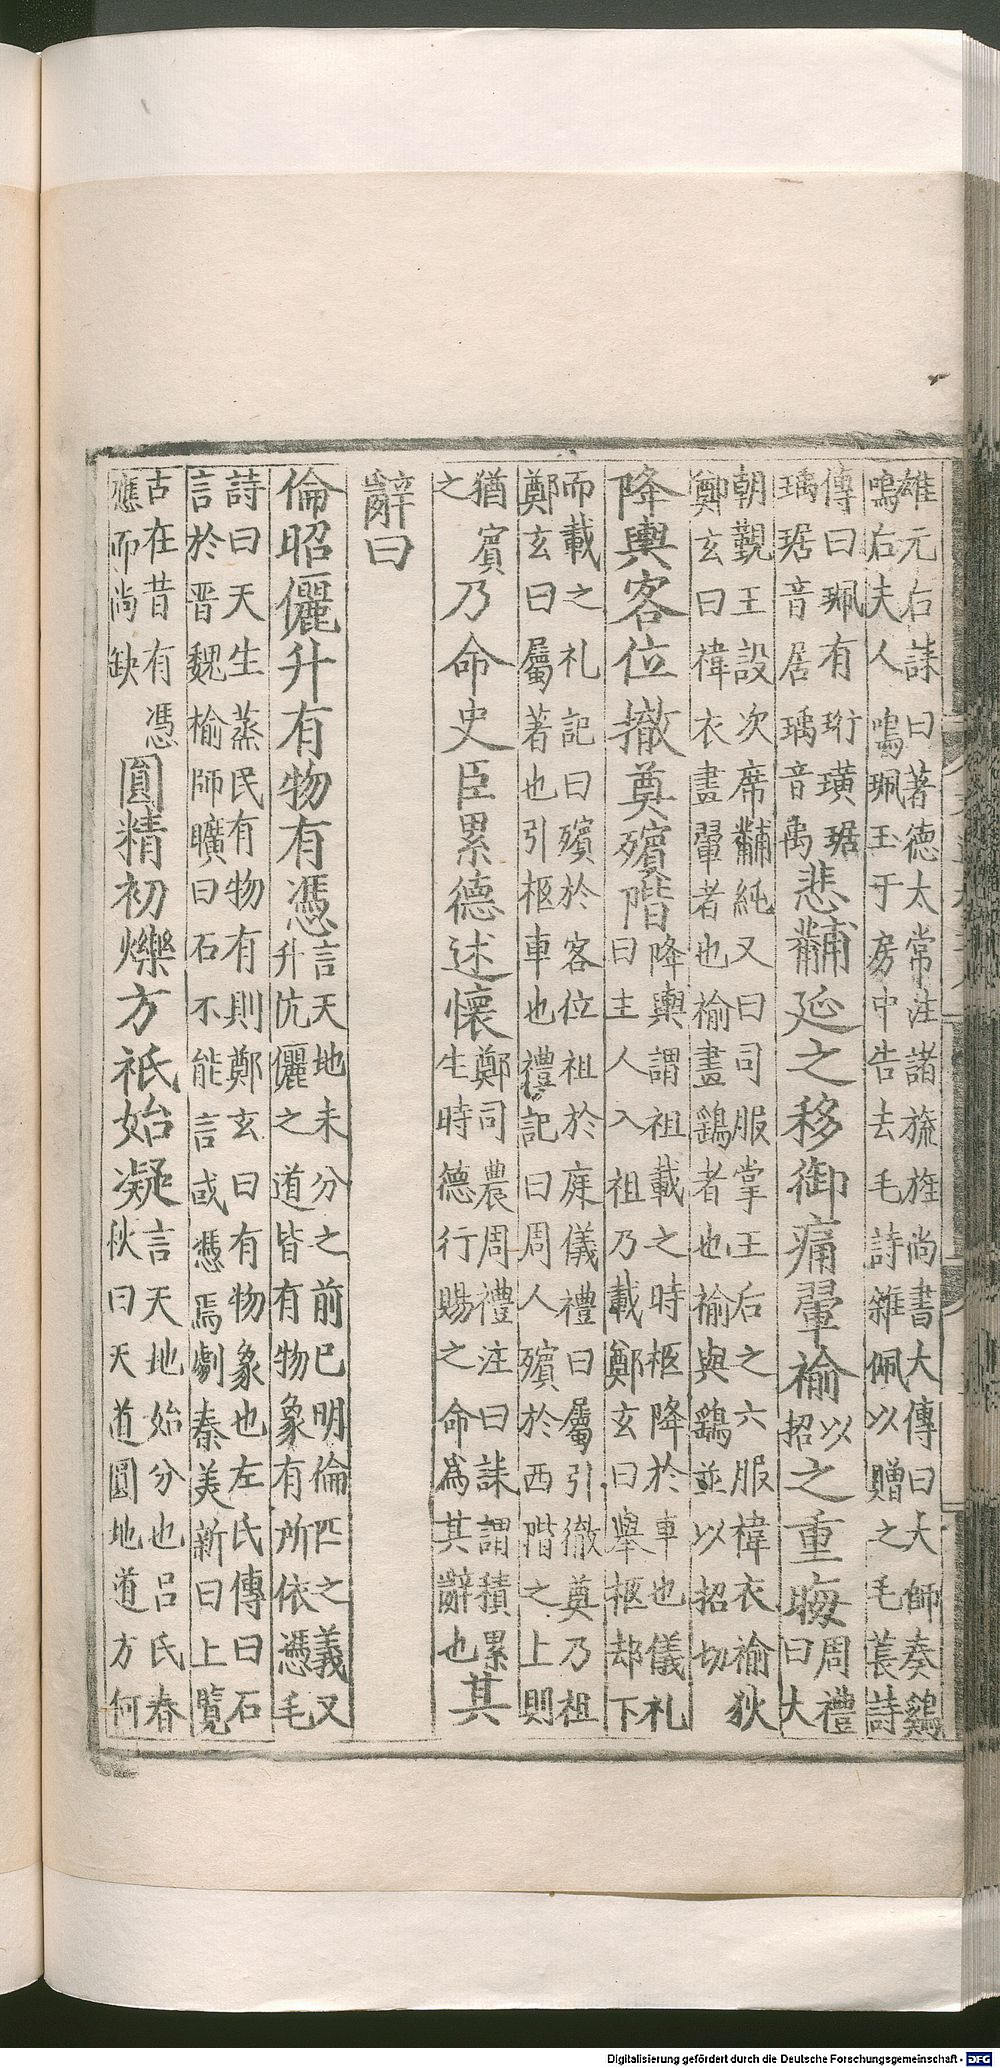 雄元后誄曰著德太常注諸旒旌尚書大傳曰大師奏鷄
鳴后夫人鳴珮玉于房中告去毛詩雜佩以贈之毛萇詩
傳曰珮有珩璜琚
瑀琚音居瑀音禹
悲黼延之移御痛翬褕
以
招
之重晦
周禮
曰大
朝覲王設次席黼純又曰司服掌王后之六服褘衣褕狄
鄭玄曰褘衣畫翬者也褕畫鷂者也褕與鷂並以招切
降輿客位撤奠殯階
降輿謂祖載之時柩降於車也儀礼
曰主人入祖乃載鄭玄曰舉柩却下
而載之礼記曰殯於客位祖於庭儀禮曰屬引徹奠乃祖
鄭玄曰屬著也引柩車也禮記曰周人殯於西階之上則
猶賓
之
乃命史臣累德述懷
鄭司農周禮注曰誄謂積累
生時德行賜之命為其辭也
其
辭曰
倫昭儷升有物有憑
言天地未分之前已明倫匹之義又
升伉儷之道皆有物象有所依憑毛
詩曰天生蒸民有物有則鄭玄曰有物象也左氏傳曰石
言於晋魏榆師曠曰石不能言或憑焉劇秦美新曰上覽
古在昔有憑
應而尚缺
圓精初爍方祇始凝
言天地始分也呂氏春
秋曰天道圓地道方何
Digitalisierung gefördert durch die Deutsche Forschungsgemeinschaft - DFG